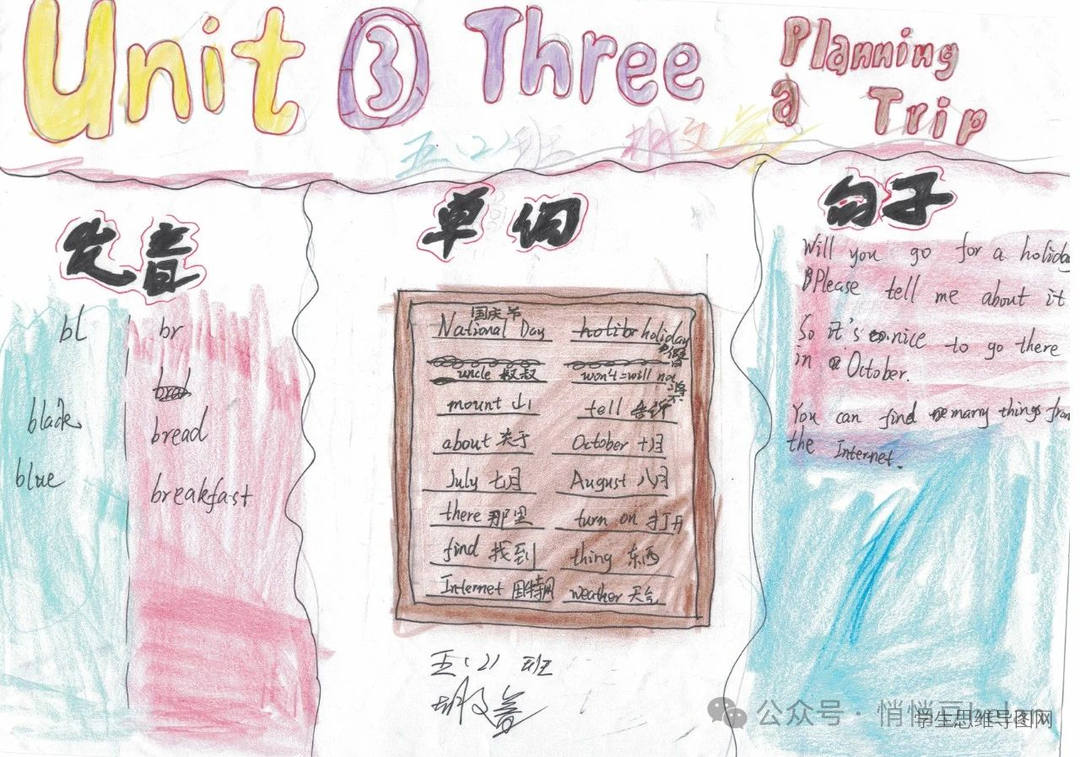 Unit ③ Three Planning
a Trip
五(2)班
发音
bl br
black bread
blue breakfast
单词
国庆节
National Day holiday
uncle 叔叔 won't=will not
mount 山 tell 告诉
about 关于 October 十月
July 七月 August 八月
there 那里 turn on 打开
find 找到 thing 东西
Internet 因特网 weather 天气
五(2)班
句子
Will you go for a holiday
Please tell me about it
So it's nice to go there
in October.
You can find many things from
the Internet.
公众号·悄悄
学生思维导图网